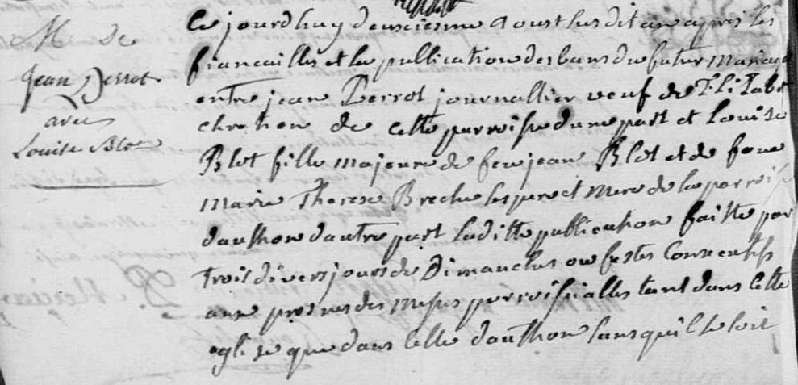 M. de
Jean Perrot
avec
Louise Blot
Ce jourdhuy deuxieme Aoust susdit an apres les
fiancailles et la publication des bans du futur Mariage
entre jean Perrot journallier veuf de Elizabet
chretien de cette parroisse d'une part et Louise
Blot fille majeure de feu jean Blot et de feue
marie Therese Breche ses pere et mere de la parroisse
dauthon dautre part laditte publication faitte par
trois divers jours de Dimanches ou festes Consecutifs
aux prosnes des Messes parroissialles tant dans cette
eglise que dans celle dauthon sans quil se soit